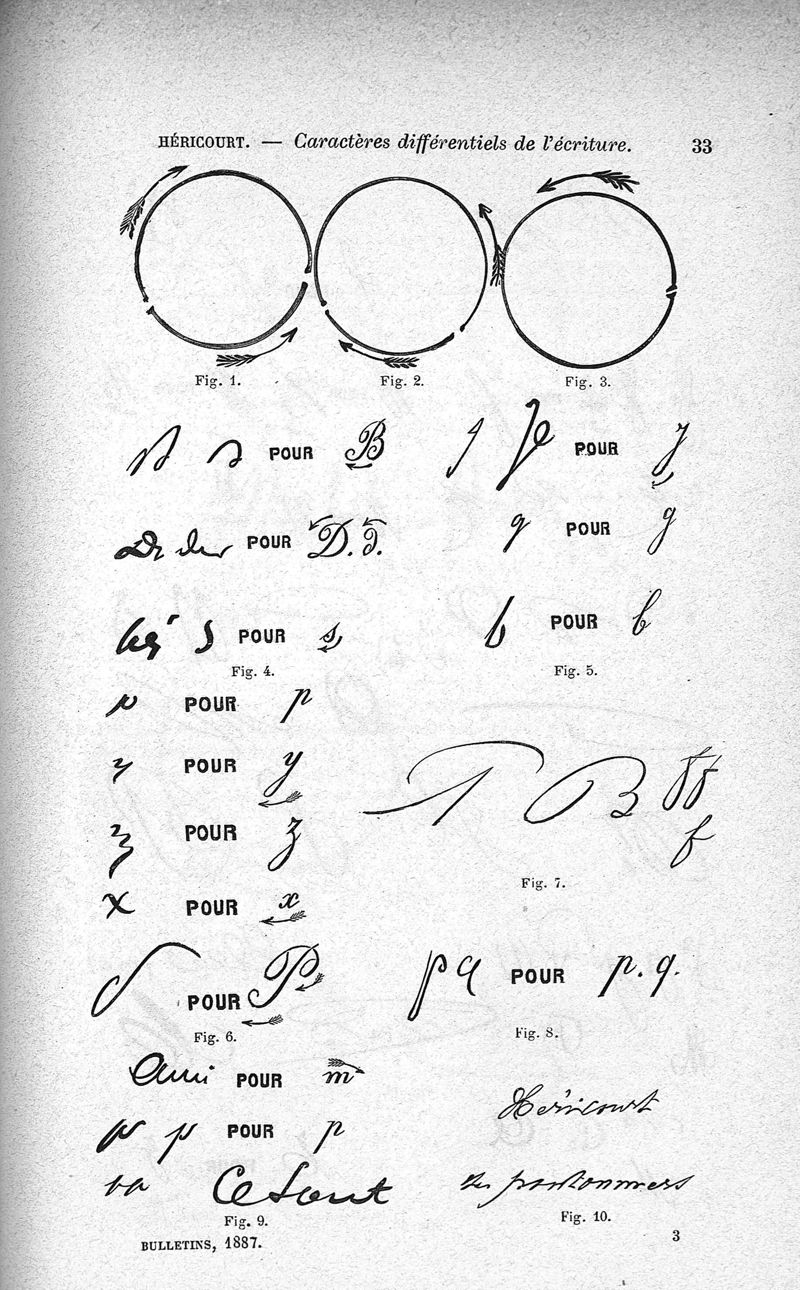 HÉRICOURT. — Caractères différentiels de l'écriture. 33
Fig. 1. Fig. 2. Fig. 3.
POUR B
POUR J
POUR D. d.
g POUR g
POUR s
b POUR b
Fig. 4. Fig. 5.
p POUR p
y POUR y
z POUR z
x POUR x
B
f
Fig. 7.
POUR P
p q POUR p. q.
Fig. 6. Fig. 8.
Ami POUR m
Héricourt
p p POUR p
Fig. 9. Fig. 10.
BULLETINS, 1887. 3